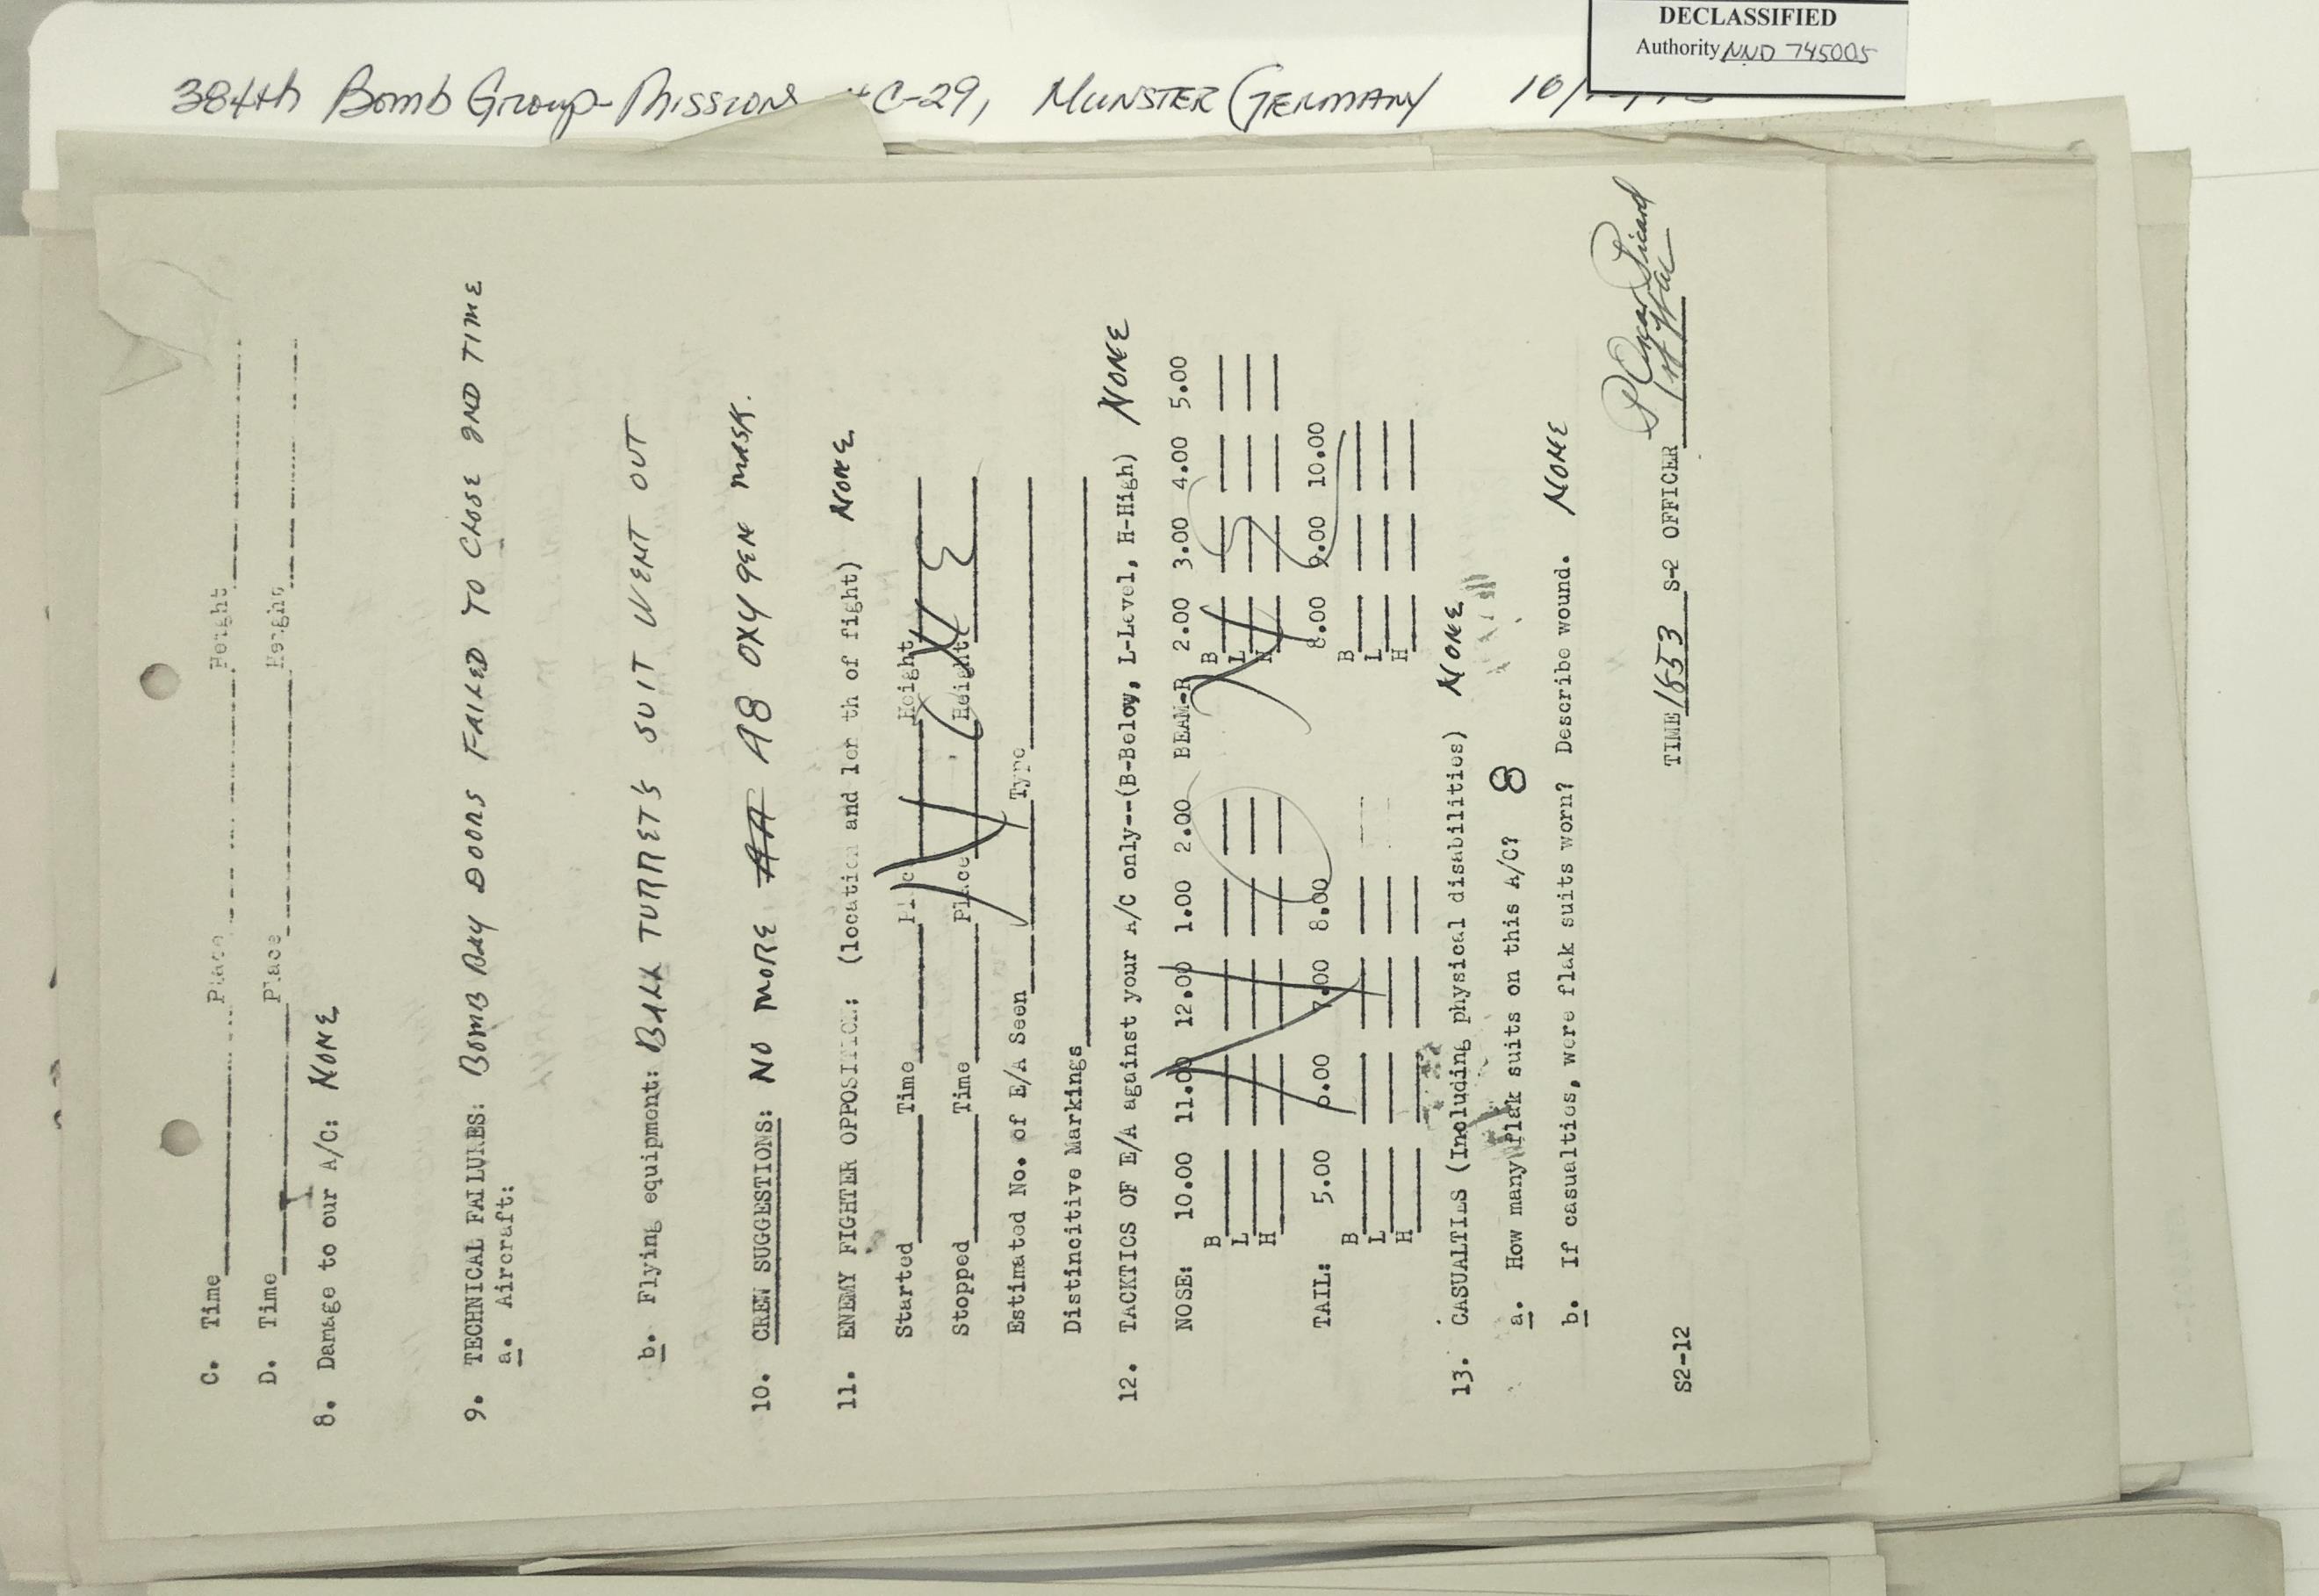 DECLASSIFIED
Authority NND 745005
384th Bomb Group-Missions #C-29, MUNSTER GERMANY 10/
C. Time Place Height
D. Time Place Height
8. Damage to our A/C: NONE
9. TECHNICAL FAILURES: BOMB BAY DOORS FAILED TO CLOSE 2ND TIME
a. Aircraft:
b. Flying equipment: BALL TURRET'S SUIT WENT OUT
10. CREW SUGGESTIONS: NO MORE AA A8 OXYGEN MASK.
11. ENEMY FIGHTER OPPOSITION: (location and len th of fight) NONE
Started Time Place Height
Stopped Time Place Height
Estimated No. of E/A Seen Type
Distincitive Markings
12. TACKTICS OF E/A against your A/C only--(B-Below, L-Level, H-High) NONE
NOSE: 10.00 11.00 12.00 1.00 2.00 BEAM-R 2.00 3.00 4.00 5.00
B B
L L
H H
TAIL: 5.00 6.00 7.00 8.00 8.00 9.00 10.00
B B
L L
H H
13. CASUALTIES (Including physical disabilities) NONE
a. How many flak suits on this A/C? 8
b. If casualties, were flak suits worn? Describe wound. NONE
TIME 1853 S-2 OFFICER P Oscar Sicard
S2-12